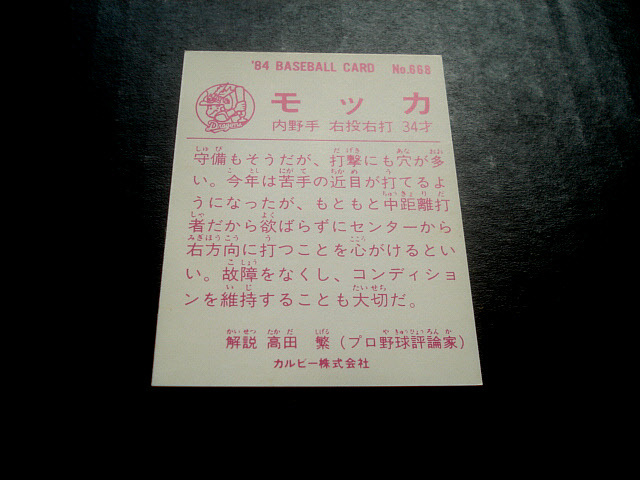 '84 BASEBALL CARD No.668
モッカ
内野手 右投右打 34才
守備もそうだが、打撃にも穴が多
い。今年は苦手の近目が打てるよ
うになったが、もともと中距離打
者だから欲ばらずにセンターから
右方向に打つことを心がけるとい
い。故障をなくし、コンディショ
ンを維持することも大切だ。
解説 高田 繁（プロ野球評論家）
カルビー株式会社